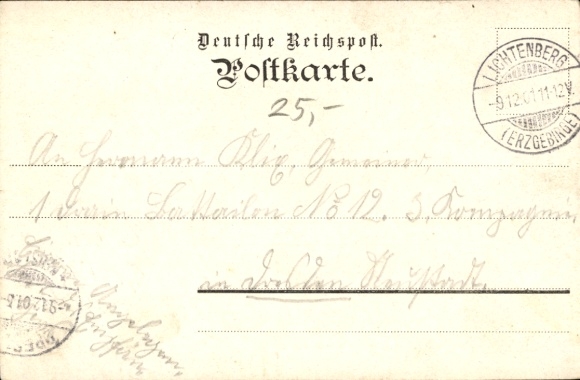 Deutsche Reichspost.
Postkarte.
LICHTENBERG
-9.12.01.11-12V.
(ERZGEBIRGE)
25,-
An Hermann Klix, Gemeiner,
1 Train Battailon No 12. 3. Kompagnie,
in Dresden Neustadt.
-9.12.01.